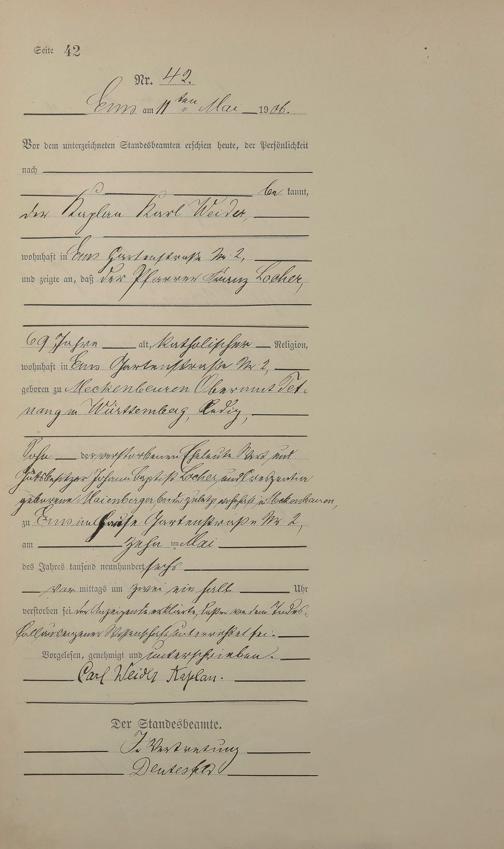 Seite 42
Nr. 42.
Ems am 11ten Mai 1906.
Vor dem unterzeichneten Standesbeamten erschien heute, der Persönlichkeit
nach
be kannt,
der Kaplan Karl Weider,
wohnhaft in Ems Gartenstraße Nr 2,
und zeigte an, daß der Pfarrer Franz Locher,
69 Jahre alt, katholischer Religion,
wohnhaft in Ems Gartenstraße Nr 2,
geboren zu Meckenbeuren Oberamt Tet-
nang in Württemberg, ledig,
Sohn der verstorbenen Eheleute und
Gutsbesitzer Johann Baptist Locher, und Kreszentia
geborene Maienberger, beide zuletzt wohnhaft in Meckenbeuren,
zu Ems im Hause Gartenstraße Nr 2,
am zehn ten Mai
des Jahres tausend neunhundert sechs
vor mittags um zwei ein halb Uhr
verstorben sei. der Anzeigende erklärte, daß er von dem Todes-
falle aus eigener Wissenschaft unterrichtet sei.
Vorgelesen, genehmigt und unterschrieben.
Carl Weider Kaplan.
Der Standesbeamte.
In Vertretung